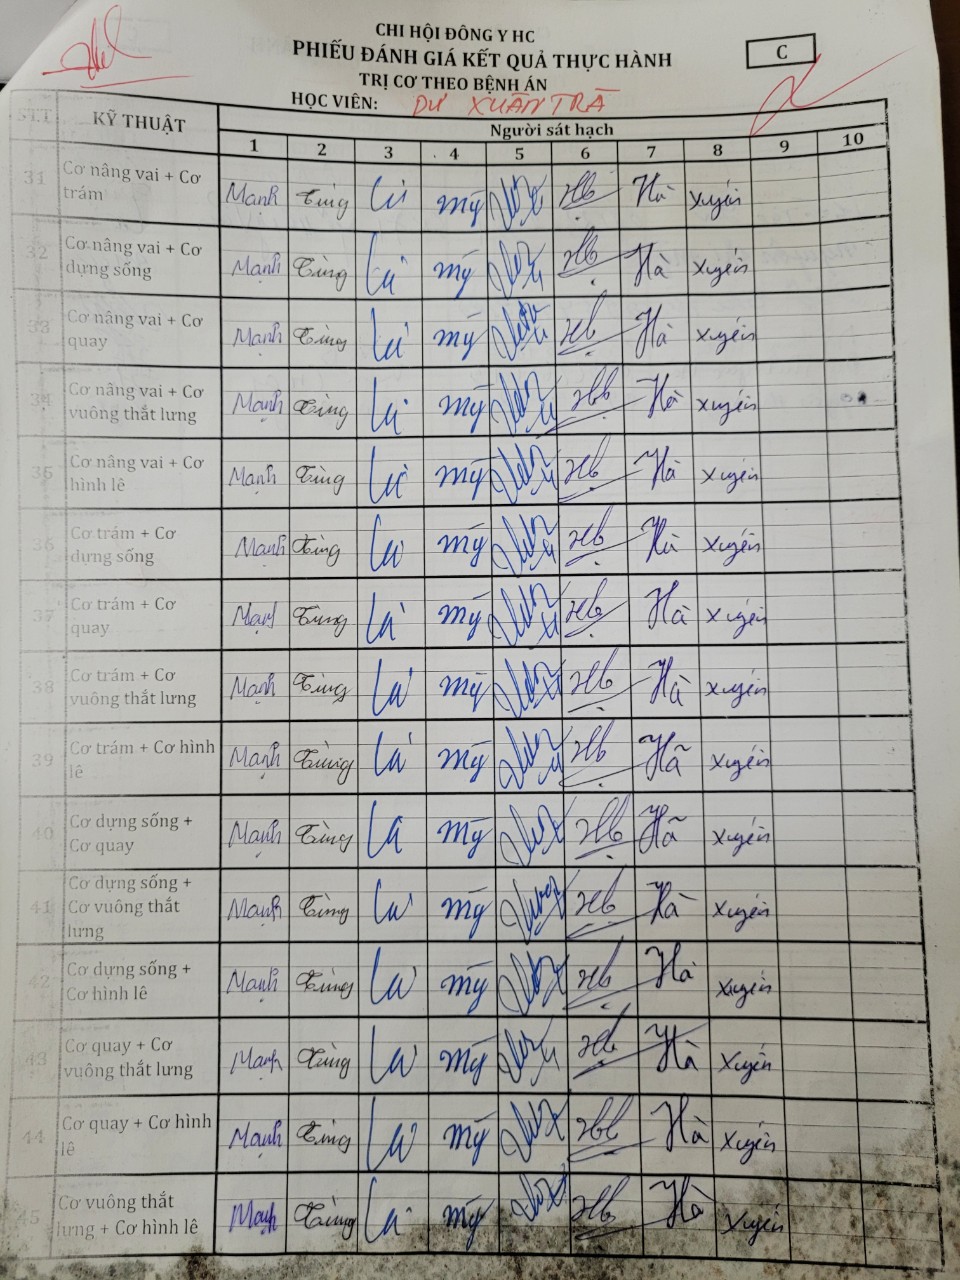 CHI HỘI ĐÔNG Y HC
PHIẾU ĐÁNH GIÁ KẾT QUẢ THỰC HÀNH
C
TRỊ CƠ THEO BỆNH ÁN
HỌC VIÊN: DƯ XUÂN TRÀ
STT KỸ THUẬT Người sát hạch
1 2 3 4 5 6 7 8 9 10
31 Cơ nâng vai + Cơ
trám
Mạnh Tùng Lư Mỹ Hà Xuyến
32 Cơ nâng vai + Cơ
dựng sống
Mạnh Tùng Lư Mỹ Hà Xuyến
33 Cơ nâng vai + Cơ
quay
Mạnh Tùng Lư Mỹ Hà Xuyến
34 Cơ nâng vai + Cơ
vuông thắt lưng
Mạnh Tùng Lư Mỹ Hà Xuyến
35 Cơ nâng vai + Cơ
hình lê
Mạnh Tùng Lư Mỹ Hà Xuyến
36 Cơ trám + Cơ
dựng sống
Mạnh Tùng Lư Mỹ Hà Xuyến
37 Cơ trám + Cơ
quay
Mạnh Tùng Lư Mỹ Hà Xuyến
38 Cơ trám + Cơ
vuông thắt lưng
Mạnh Tùng Lư Mỹ Hà Xuyến
39 Cơ trám + Cơ hình
lê
Mạnh Tùng Lư Mỹ Hà Xuyến
40 Cơ dựng sống +
Cơ quay
Mạnh Tùng Lư Mỹ Hà Xuyến
41 Cơ dựng sống +
Cơ vuông thắt
lưng
Mạnh Tùng Lư Mỹ Hà Xuyến
42 Cơ dựng sống +
Cơ hình lê
Mạnh Tùng Lư Mỹ Hà Xuyến
43 Cơ quay + Cơ
vuông thắt lưng
Mạnh Tùng Lư Mỹ Hà Xuyến
44 Cơ quay + Cơ hình
lê
Mạnh Tùng Lư Mỹ Hà Xuyến
45 Cơ vuông thắt
lưng + Cơ hình lê
Mạnh Tùng Lư Mỹ Hà Xuyến